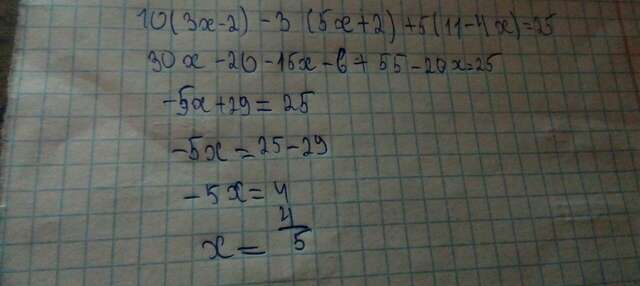 10(3x-2) - 3 (5x+2) + 5(11-4x)=25
30x - 20 - 15x - 6 + 55 - 20x=25
-5x+29 = 25
-5x = 25-29
-5x = 4
x = 4/5